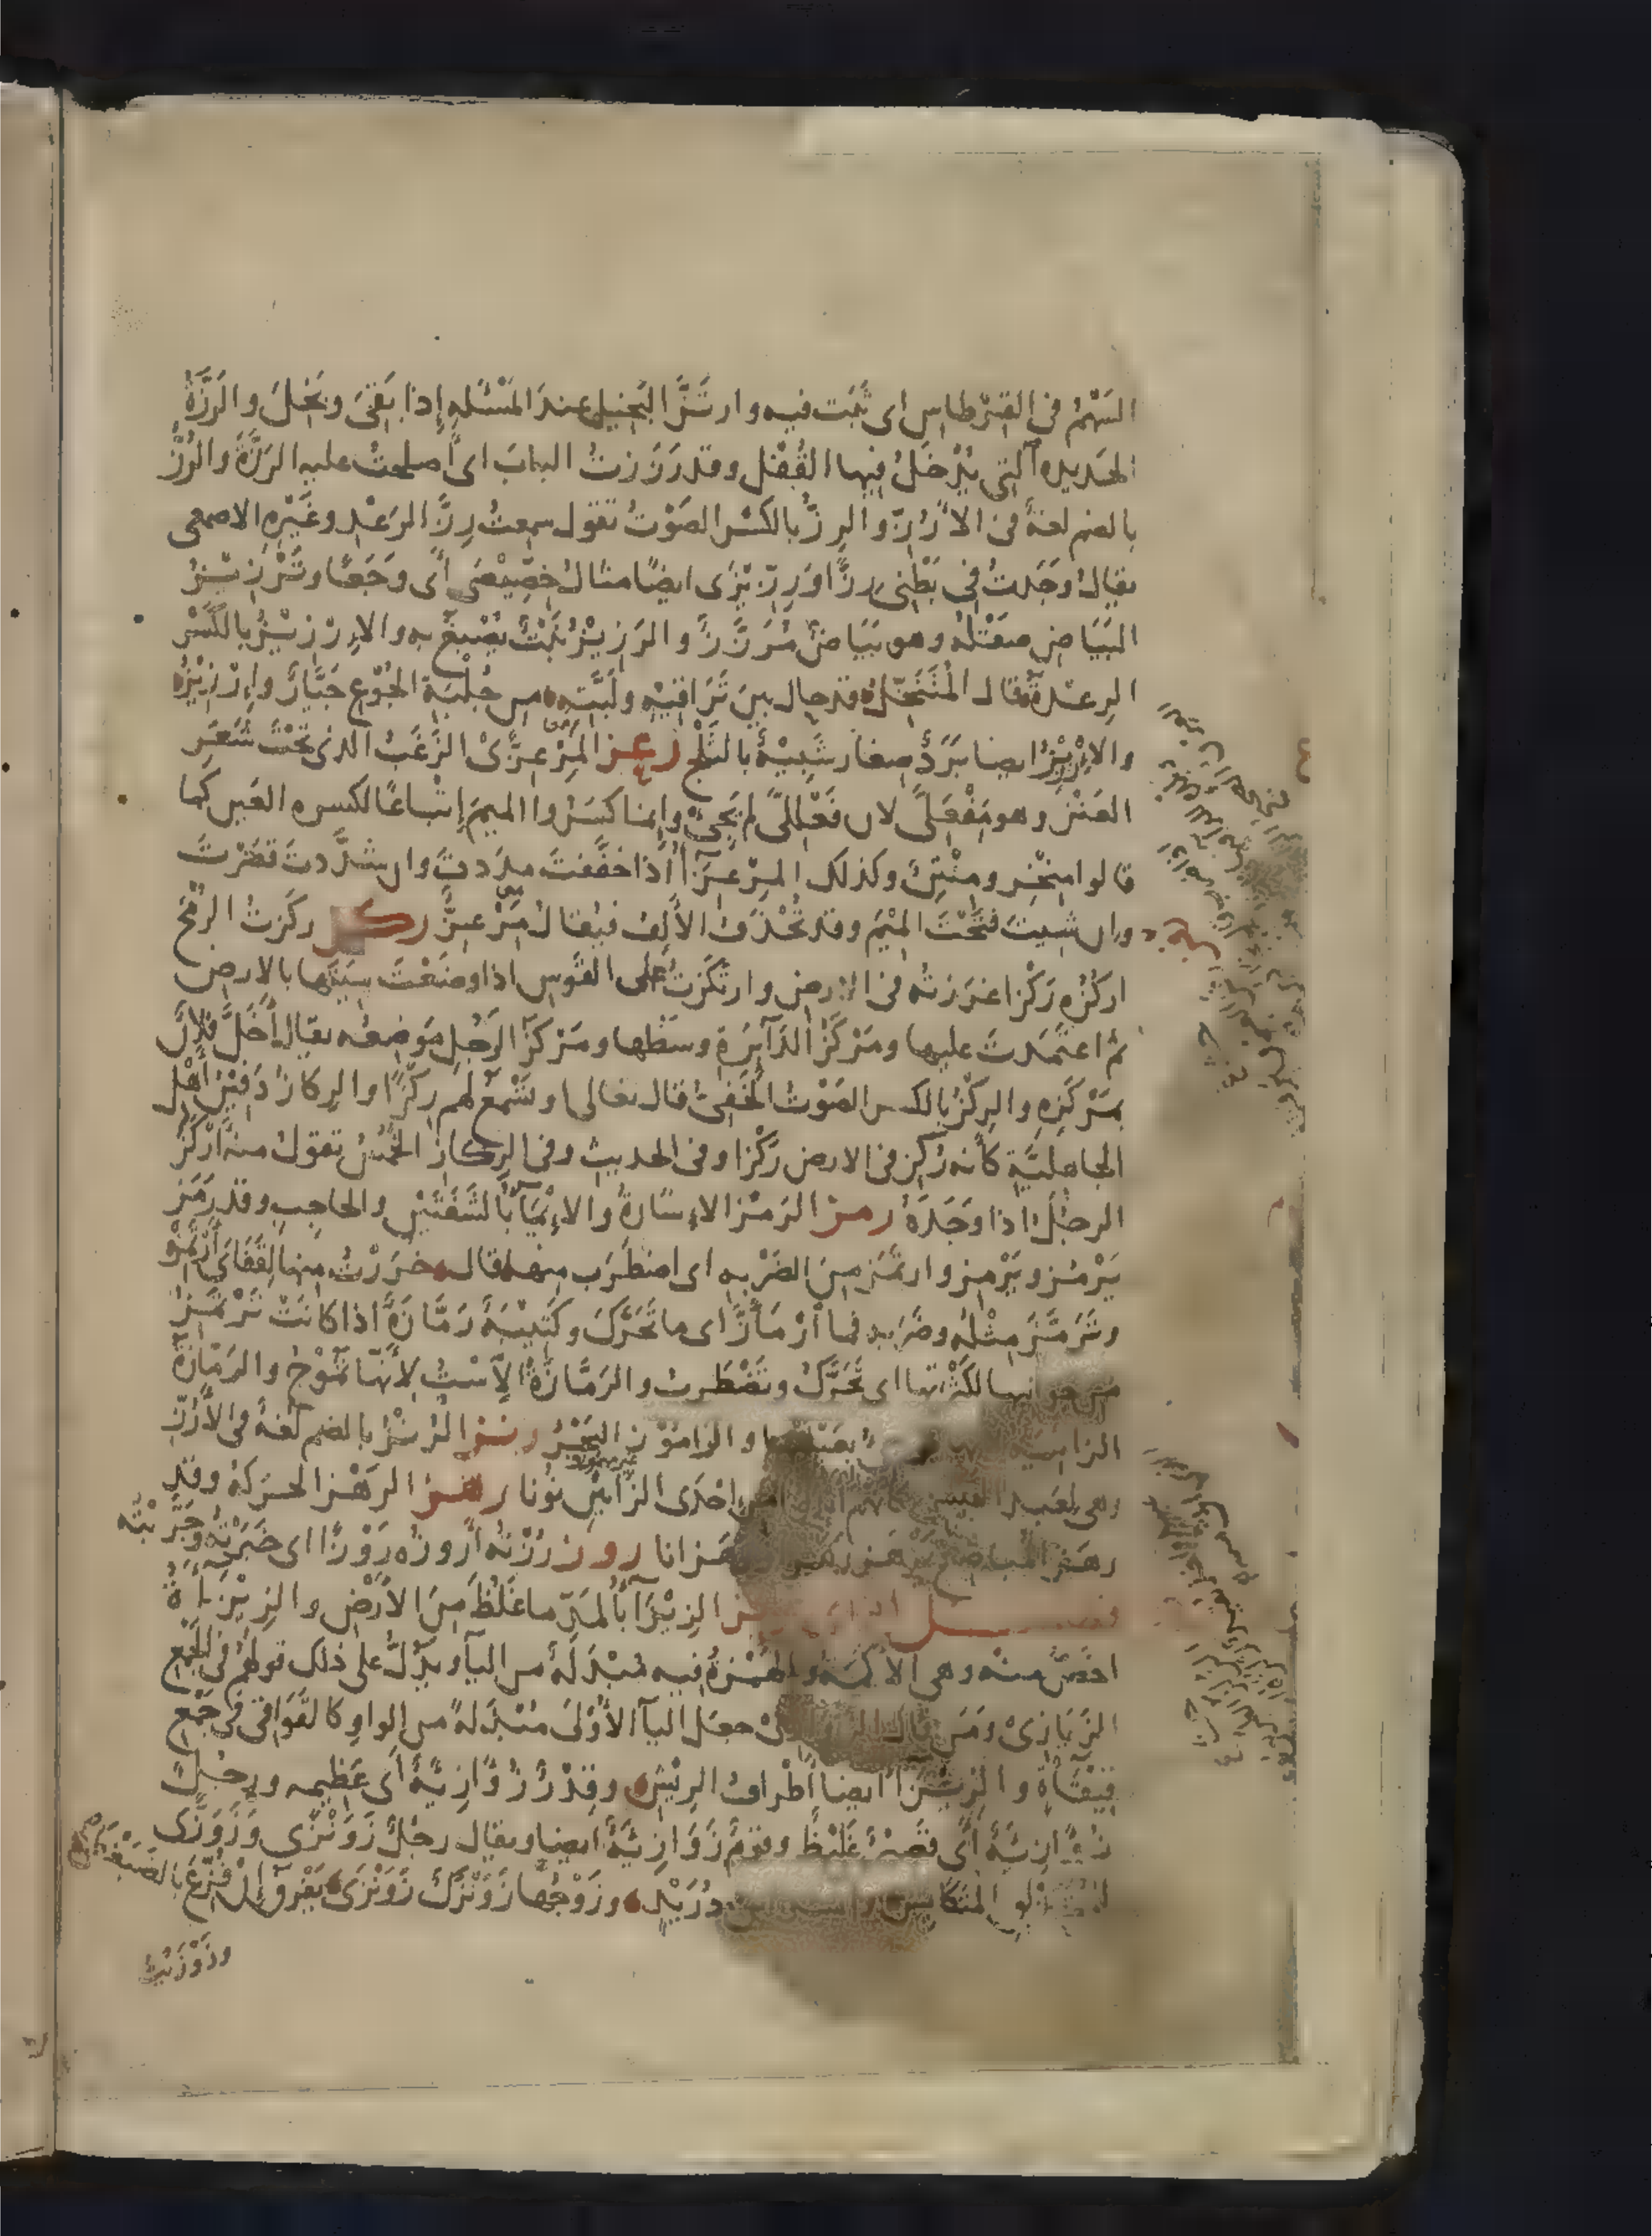 السَهْمُ في القِرْطاسِ اى ثَبَت فيه وارتَزَّ البَخيل عندَ المَسْئَله إذا بَقِىَ وبَخِلَ والرَزَّةُ
الحَديده التي يُدْخَلُ فيها القُفْل وقد رَزَزتُ البابَ اى اَصلحتُ عليه الرَزَّةَ والرُزُّ
بالضم لغةٌ في الأَرُزّ والرِزُّ بالكَسْر الصَوْتُ تقول سمِعتُ رِزَّ الرَعْدِ وغَيْرِهِ الاصمعى
يقالُ وجَدتُ في بَطْنى رِزًّا ورِزِّيزَى ايضًا مثالُ خِصِّيصَى أى وَجَعًا وتَرْزِيْزُ
البَيَاضِ صقْلُهُ وهو بَيَاضٌ مُرَزَّزٌ والرَزِيْزُ نَبْتٌ يُصْبَغُ به والإِرْزِيْزُ بالكَسْر
الرِعْدَةُ قال المُتَنَخّلُ قد حال بين تَرَاقيْهِ ولَبَّتِهِ من جُلْبَةِ الجُوْعِ جَيَّارٌ وإِرْزِيْزُ
والإِرْزِيْزُ ايضا بَرَدٌ صِغارٌ شَبِيْهٌ بالثَلْج رعز المِرْعِزَّىْ الزَغَبُ الذى تَحْتَ شَعَرِ
العَنْزِ وهو مِفْعِلَّى لان فَعْلِلَّى لم يَجِئْ وإنما كسَرُوا الميمَ إتْباعًا لكسره العَين كما
قالوا مِنْخِر ومِنْتِنٌ وكذلك المِرْعِزَآءُ اذا خفَّفتَ مدَدتَ وان شدَّدتَ قصَرْتَ
وان شيتَ فتَحْتَ المِيْمَ وقد تُحْذَفُ الأَلِفُ فيُقالُ مِرْعِزٌّ ركز ركَزتُ الرُمْحَ
اركُزُه رَكْزا غرَزتُه في الارض وارتكَزتُ على القَوسِ اذا وضَعْتَ سِيَتَها بالارض
ثم اعتمَدتَ عليها ومَرْكَزُ الدَآئِرَةِ وسَطُها ومَرْكَزُ الرَجُلِ مَوْضِعُه يقال أَخَلَّ فُلانٌ
بمَرْكَزِه والرِكْزُ بالكسر الصَوْتُ الخَفِىُّ قال تعالى او تَسْمَعُ لهم رِكْزًا والرِكازُ دَفِيْنُ أَهْلِ
الجاهليَّةِ كأنه رُكِز في الارض رَكْزا وفى الحديث وفى الرِكازِ الخُمُسُ تقولُ منه أَرْكَزَ
الرجُلُ اذا وَجَدَهُ رمز الرَمْزُ الإشارةُ والإِيْمَآءُ بالشَفَتَيْنِ والحاجِبِ وقد رَمَز
يَرْمُز ويَرْمِز وارتمَز مِنَ الضَرْبه اى اضطَرَب منها قال خرَرْتُ منها لِقَفَاىَ أَرْتَمِزُ
وتَرَمَّزَ مِثْلُه وضَرَبه فما ارْمَأَزَّ اى ما تَحَرَّكَ وكَتِيْبَةٌ رَمَّازَةٌ اذا كانَتْ تَرْتَمِزُ
من جوانبها لكَثْرتها اى تَحَرَّكُ وتَضْطَرِبُ والرَمَّازَةُ الاِسْتُ لأنّها تَمُوْجُ والرَمّازَةُ
الزانِيَةُ والرَامُوْزُ البَحْرُ رنز الرُنْزُ بالضم لغةٌ في الأَرُزِّ
وهى لعَبد القيس كانهم احْدَى الزَايَيْنِ نُونًا رهز الرَهْزُ الحركةُ وقد
رهَز المُباضِعُ يَرْهَز رَهْزا ورهَزانا روز رُزْتُه أَروزُه رَوْزًا اى جَرَّبْتُه وخَبَرْتُه
فصل الزاى الزِيْزَآءُ بالمَدّ ما غَلُظَ مِنَ الأَرْضِ والزِيْزَآءَةُ
اخَصُّ منه وهى الأَكَمَةُ والهَمْزةُ فيه مُبْدَلَةٌ من اليآءِ ويَدُلُّ على ذلك قولهُم في الجمعِ
الزَيَازِىْ ومَن قال الزَوَازِىْ جعَل اليآءَ الأُوْلَى مُبْدَلةً من الواو كالقَوَاقِى في جَمْعِ
قِيْقَآءَةٍ والزِيْزَآءُ ايضا أَطْرافُ الرِيْشِ وقِدْرٌ زُوَّازِيَةٌ أَى عَظِيمه ورجُلٌ
زُوَّازِيَةٌ أَى قَصِيْرٌ غَلِيْظٌ وقَومٌ زَوَازِيَةٌ ايضا ويقال رجُلٌ زَوَنْزَى وزَوَزَّى
المتَكايِس دُرَيْدٍ وزَوْجُها زَوَنْزَكٌ زَوَنْزَى يَفْرَقُ إِنْ فُزِّعَ بالضَبَغْطَرَى
وزَوْزَيْتُ